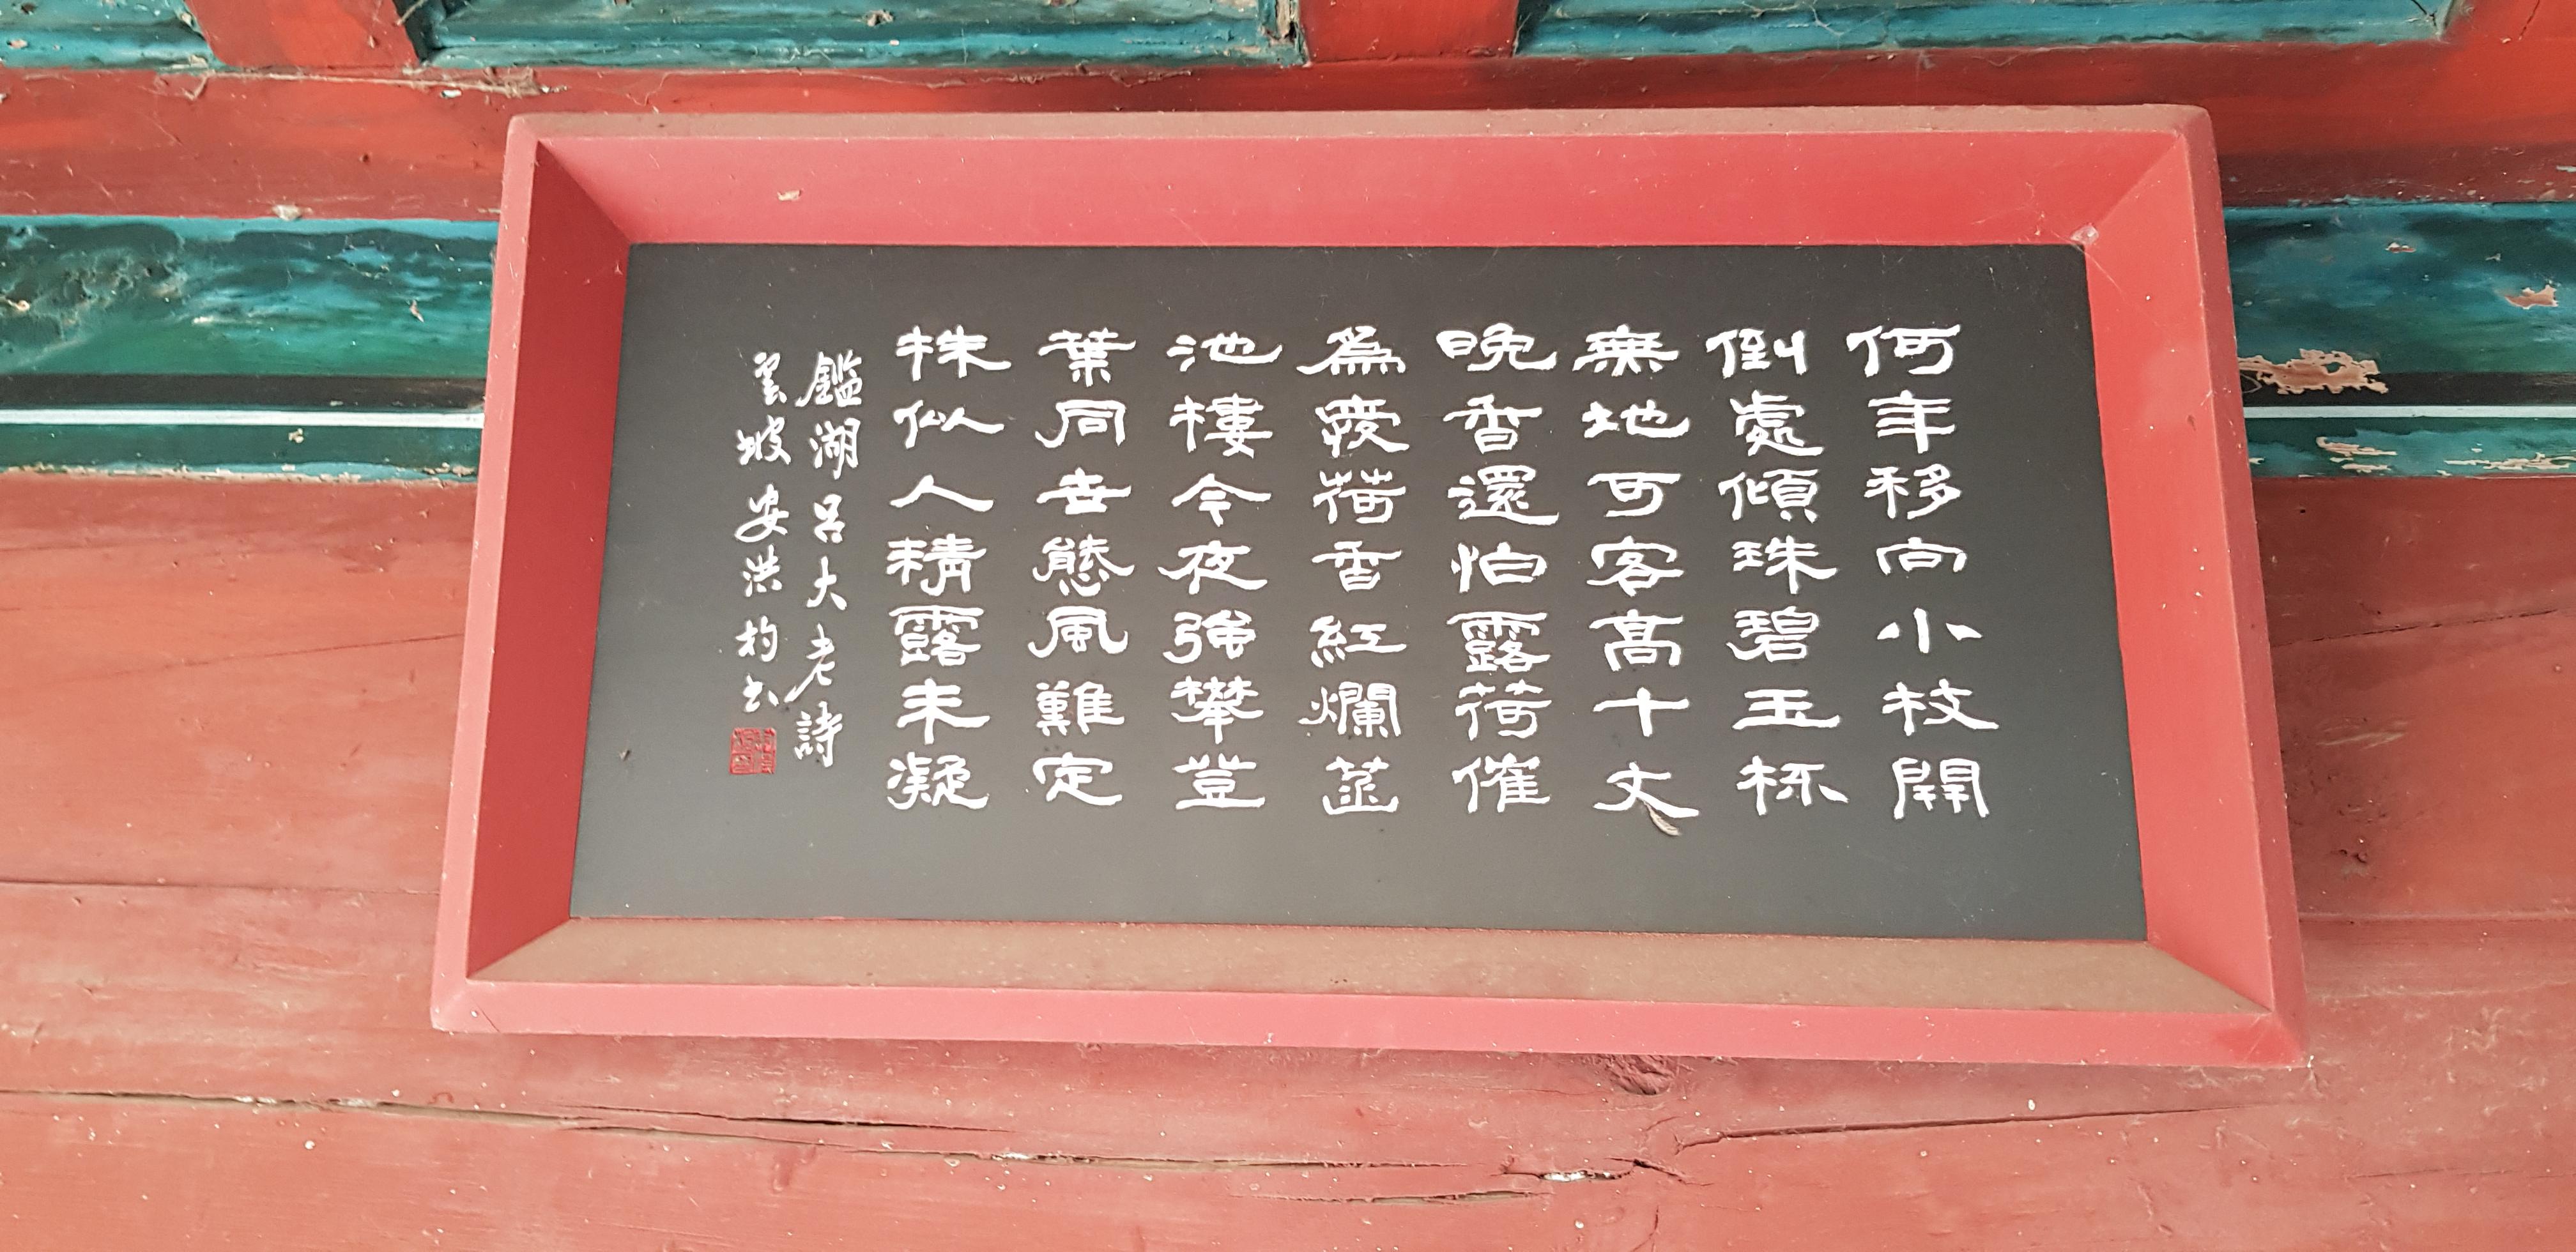 何年移向小枝開
倒處傾珠碧玉杯
無地可客高十丈
晩香還怕露荷催
為愛荷香紅爛蒸
池樓今夜強攀登
葉同世態風難定
株似人精露未凝
鑑湖呂大老詩
雲坡安洪杓書